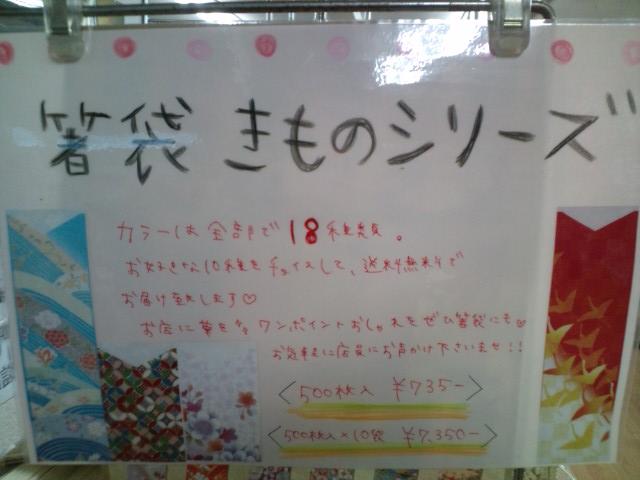 箸袋 きものシリーズ
カラーは全部で18種類。
お好きな10種をチョイスして、送料無料で
お届け致します♡
お店に華を添 ワンポイントおしゃれをぜひ箸袋にも♡
お気軽に店員にお声かけ下さいませ!!
〈500枚入 ¥735-〉
〈500枚入×10袋 ¥7,350-〉